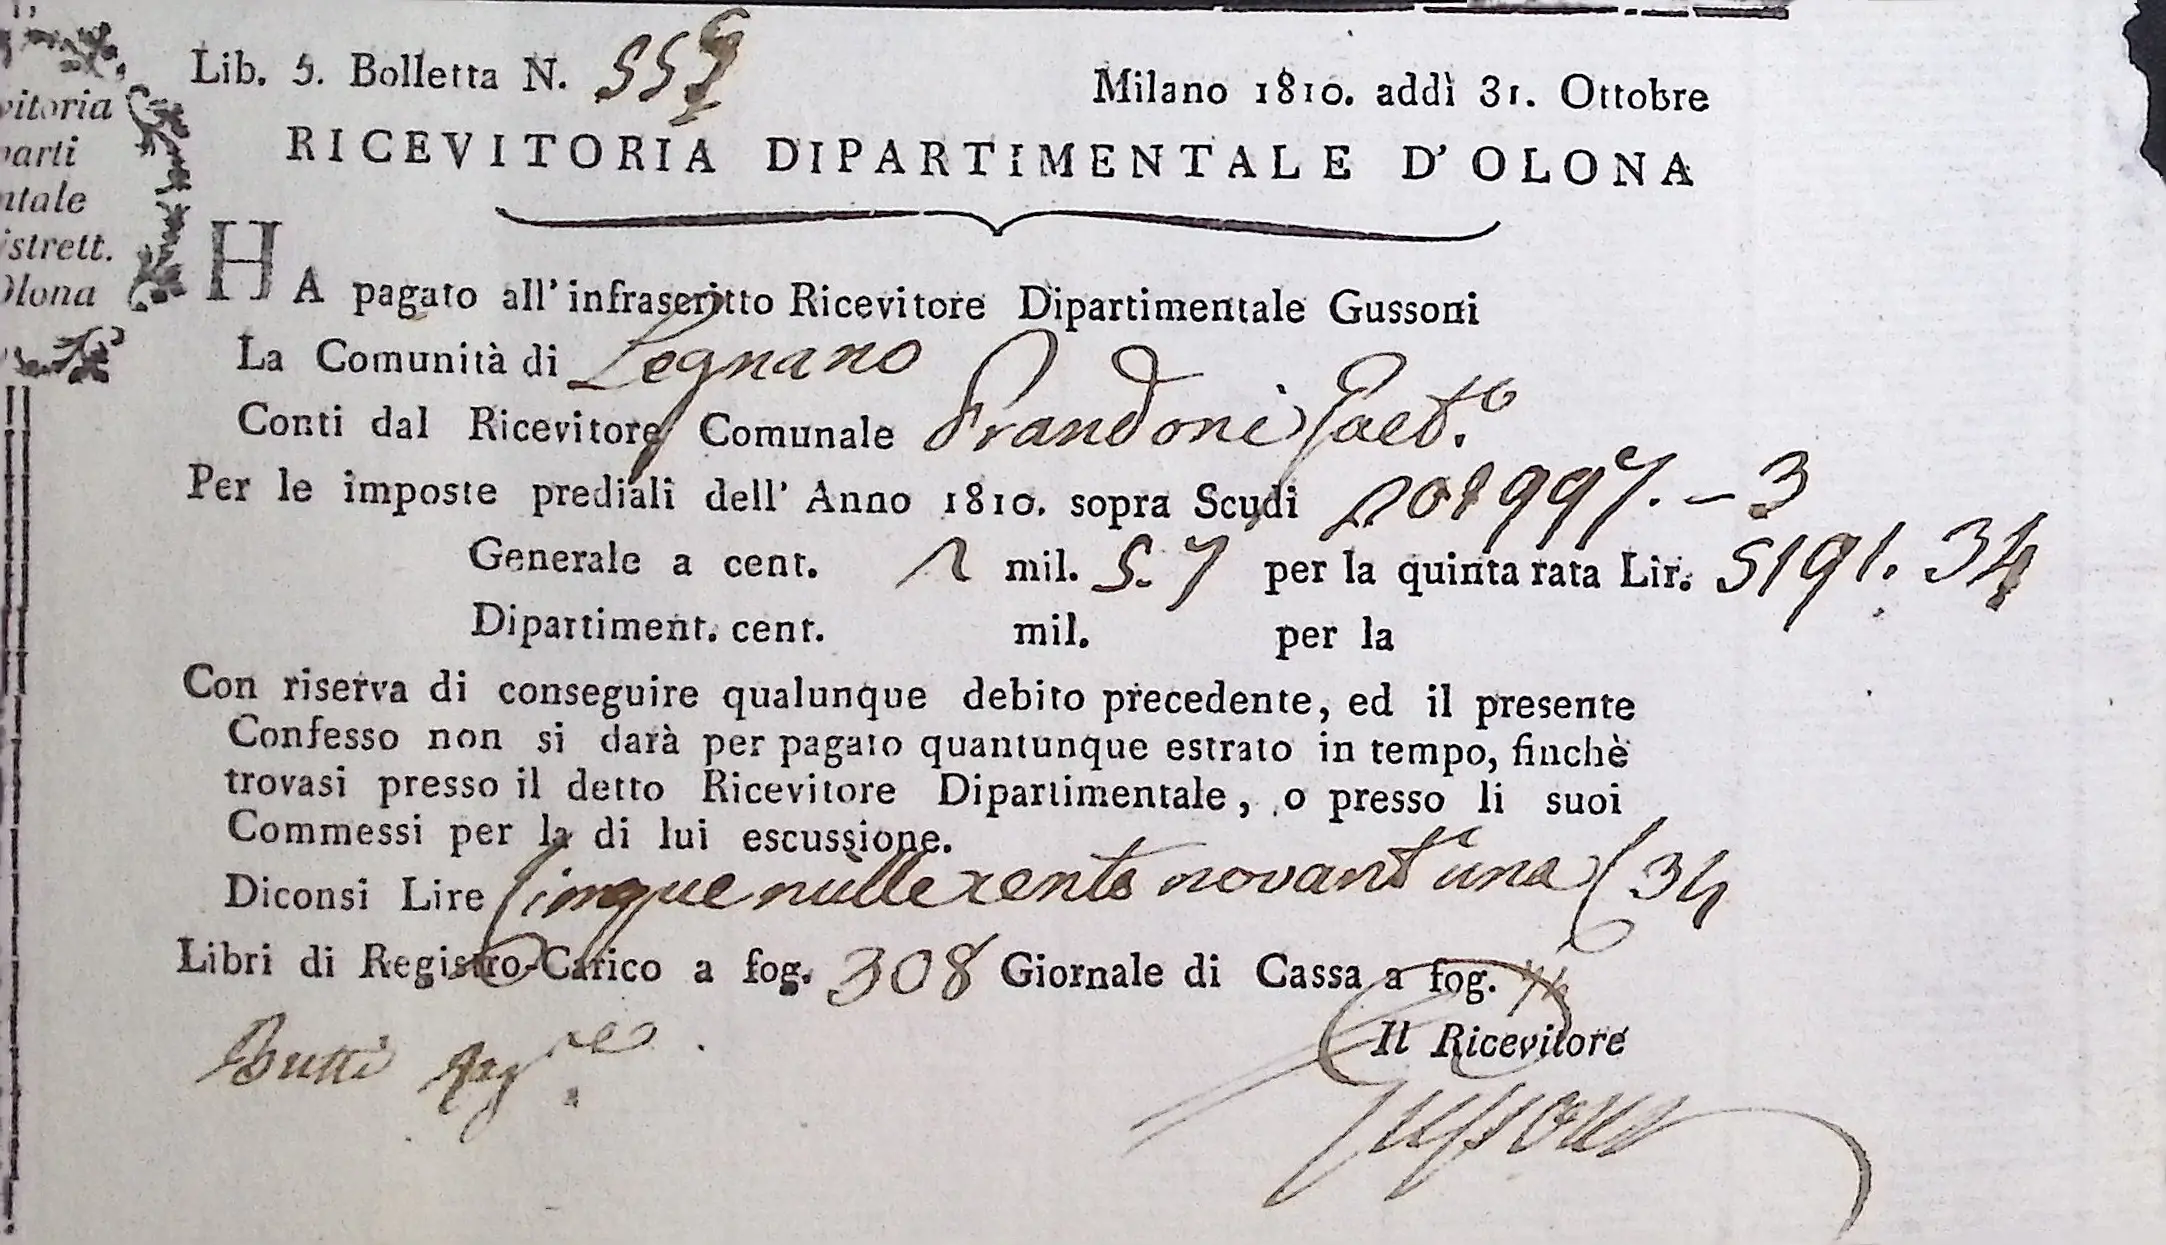 vitoria
parti
ntale
istrett.
Olona
Lib. 5. Bolletta N. 559
Milano 1810. addì 31. Ottobre
RICEVITORIA DIPARTIMENTALE D'OLONA
HA pagato all'infrascritto Ricevitore Dipartimentale Gussoni
La Comunità di Legnano
Conti dal Ricevitore Comunale Prandoni Gaet.º
Per le imposte prediali dell' Anno 1810. sopra Scudi 208997. – 3
Generale a cent. 2 mil. 5. 7 per la quinta rata Lir. 5191. 34
Dipartiment. cent. mil. per la
Con riserva di conseguire qualunque debito precedente, ed il presente
Confesso non si darà per pagato quantunque estrato in tempo, finchè
trovasi presso il detto Ricevitore Dipartimentale, o presso li suoi
Commessi per la di lui escussione.
Diconsi Lire Cinquemille cento novant'una / 34
Libri di Registro-Carico a fog. 308 Giornale di Cassa a fog.
Il Ricevitore
Butti Rag.re
Gussoni